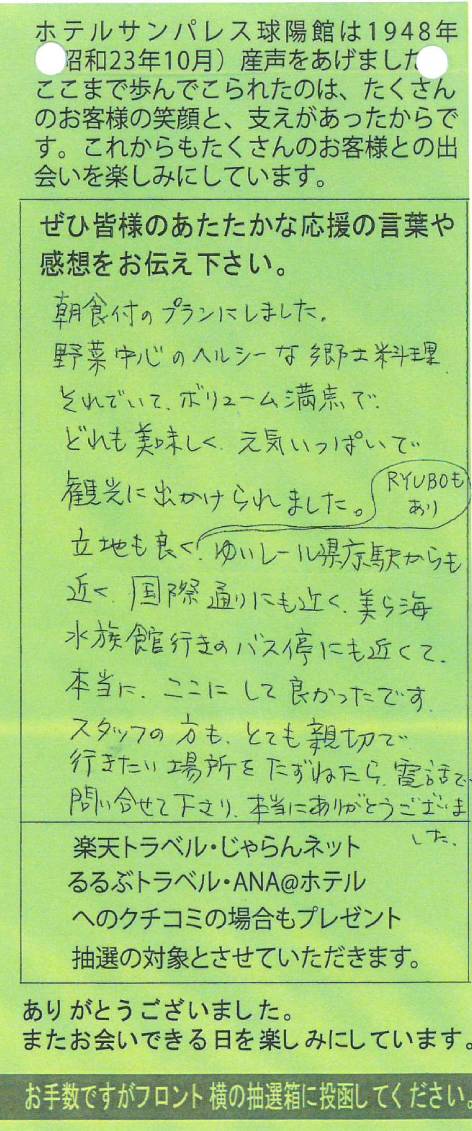 ホテルサンパレス球陽館は1948年
昭和23年10月）産声をあげました
ここまで歩んでこられたのは、たくさん
のお客様の笑顔と、支えがあったからで
す。これからもたくさんのお客様との出
会いを楽しみにしています。
ぜひ皆様のあたたかな応援の言葉や
感想をお伝え下さい。
朝食付のプランにしました。
野菜中心のヘルシーな郷土料理
それでいて、ボリューム満点で
どれも美味しく、元気いっぱいで
観光に出かけられました。
RYUBOも
あり
立地も良く、ゆいレール県庁駅からも
近く、国際通りにも近く、美ら海
水族館行きのバス停にも近くて、
本当に、ここにして良かったです。
スタッフの方も、とても親切で
行きたい場所をたずねたら、電話で
問い合せて下さり、本当にありがとうございま
した。
楽天トラベル・じゃらんネット
るるぶトラベル・ANA@ホテル
へのクチコミの場合もプレゼント
抽選の対象とさせていただきます。
ありがとうございました。
またお会いできる日を楽しみにしています。
お手数ですがフロント横の抽選箱に投函してください。